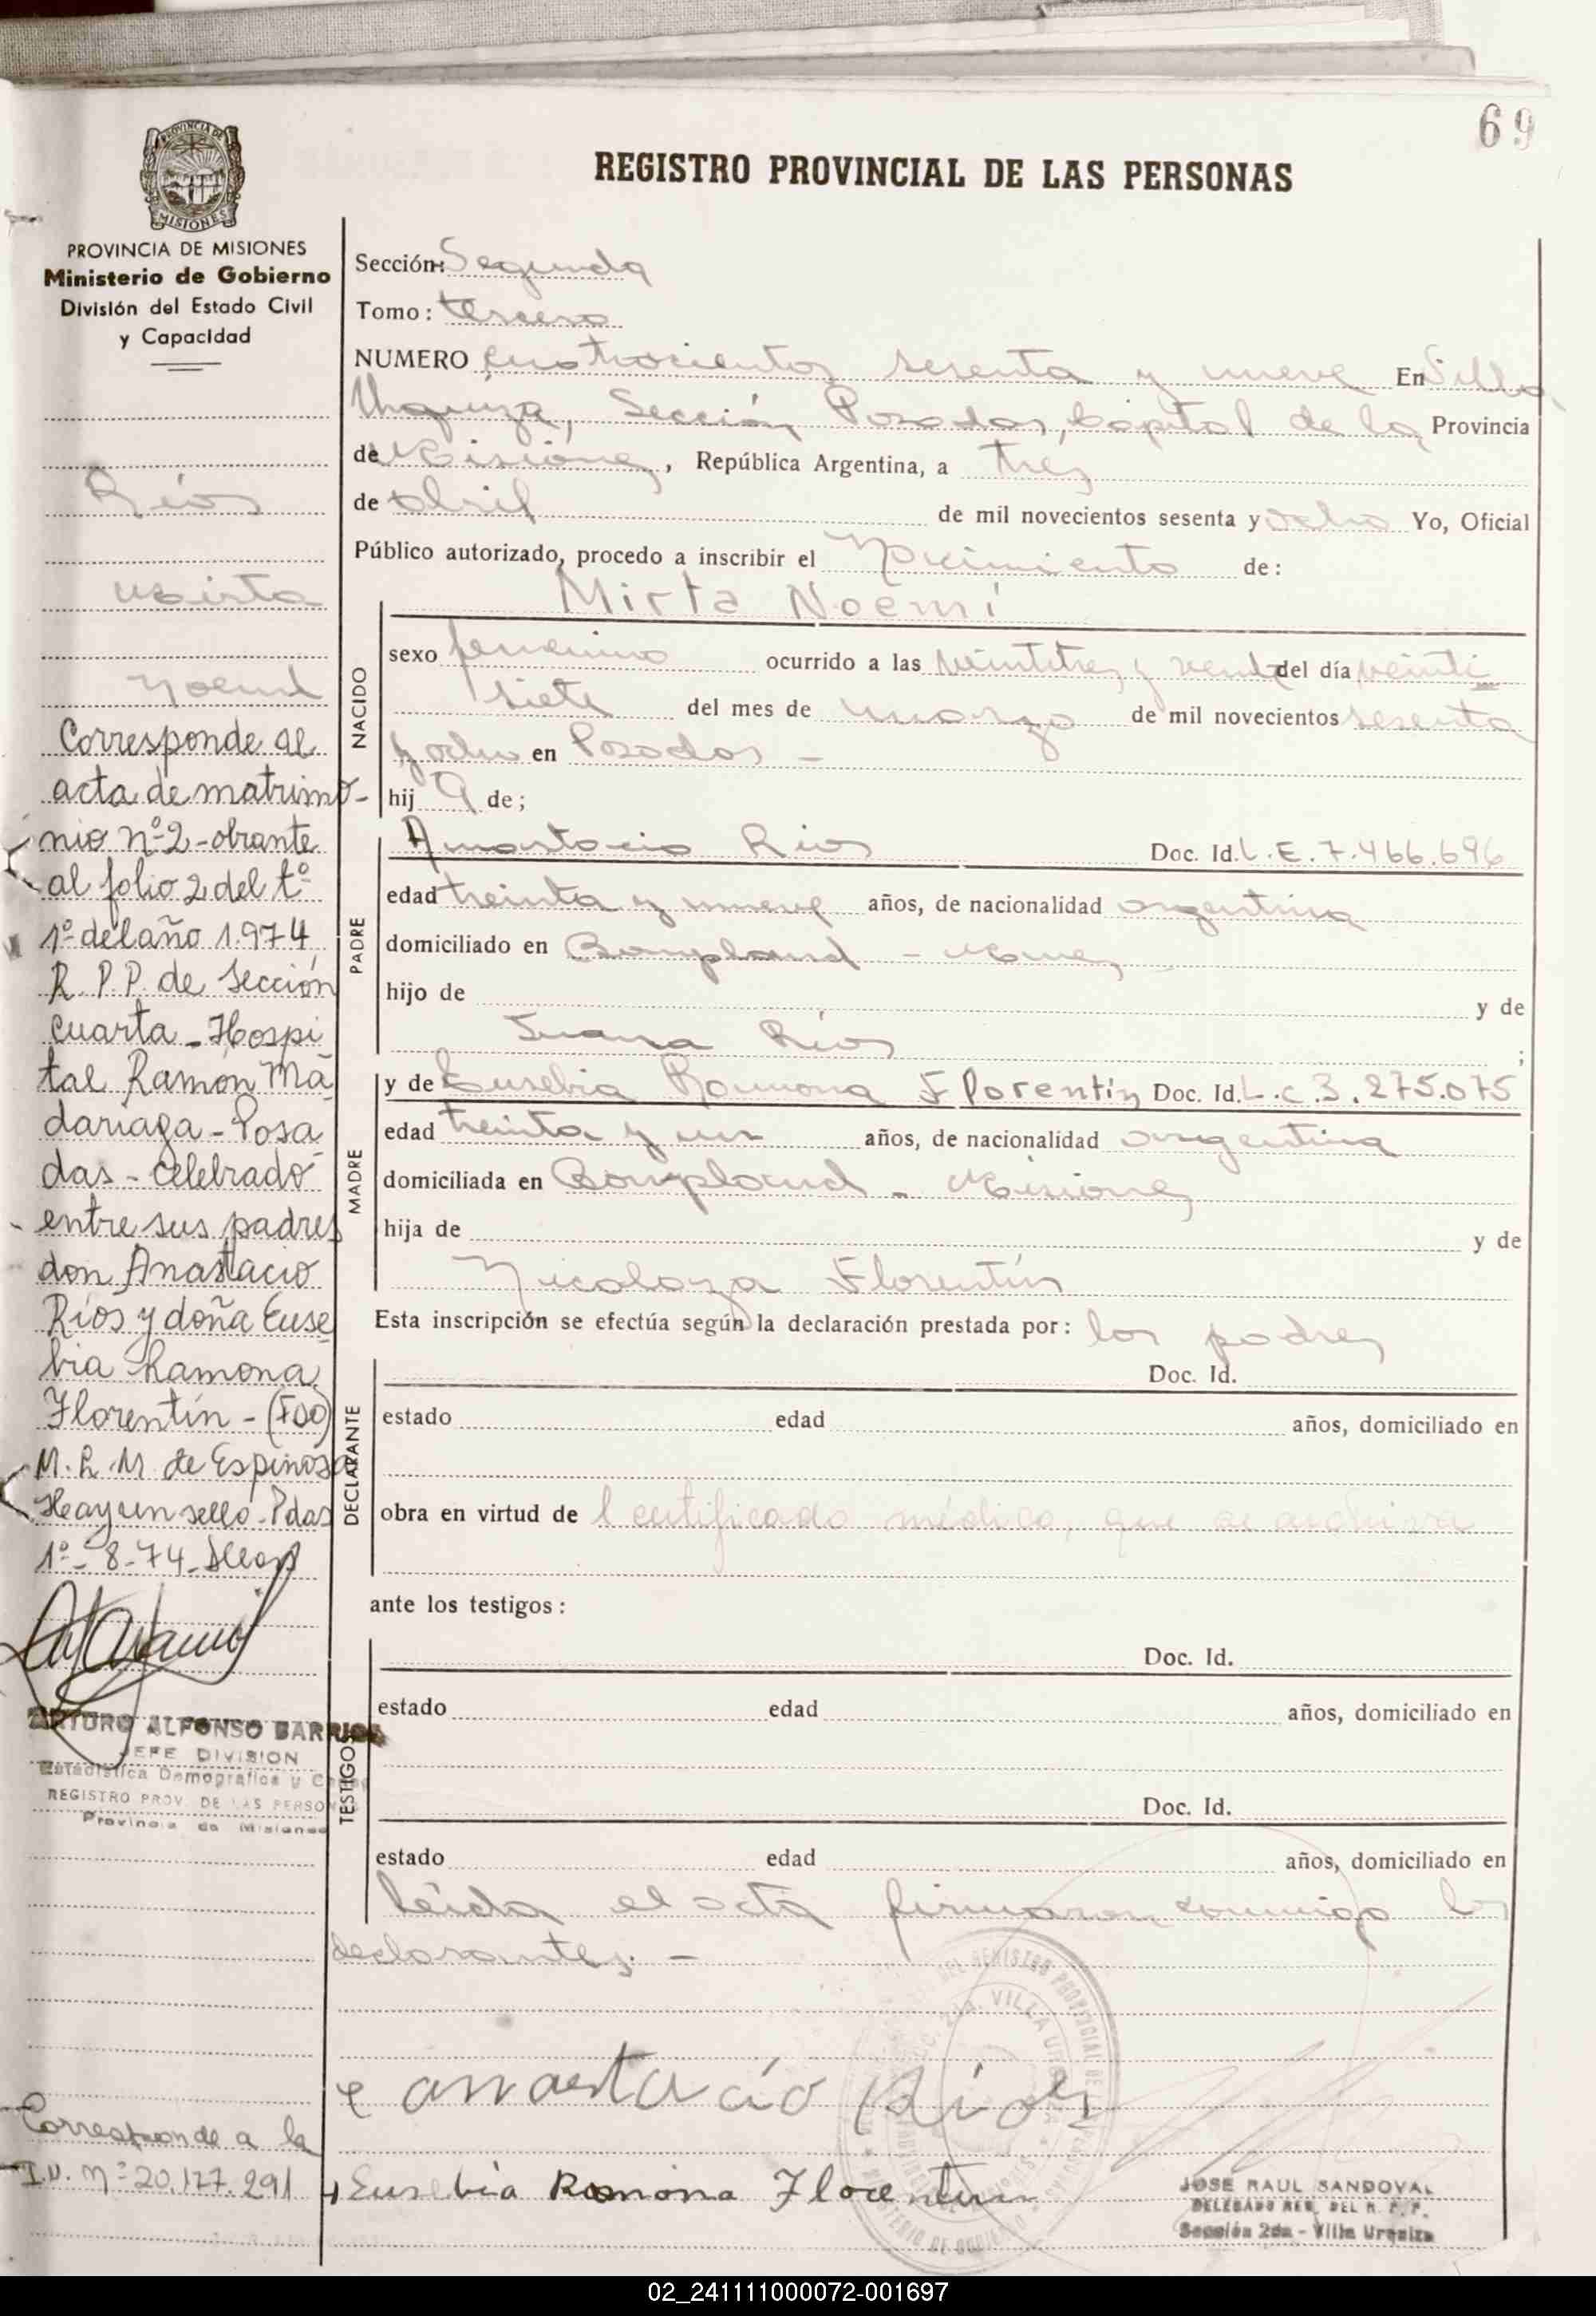 69
REGISTRO PROVINCIAL DE LAS PERSONAS
PROVINCIA DE
MISIONES
PROVINCIA DE MISIONES
Ministerio de Gobierno
División del Estado Civil
y Capacidad
Ríos
Mirta
Noemí
Corresponde al
acta de matrimo-
nio nº 2 - obrante
al folio 2 del tº
1º del año 1.974
R. P. P. de Sección
cuarta - Hospi
tal Ramón Ma
dariaga - Posa
das - celebrado
entre sus padres
don Anastacio
Ríos y doña Euse
bia Ramona
Florentín - (Fdo)
M. R. M. de Espinosa
Hay un sello - Pdas
1º - 8 - 74
ARTURO ALFONSO BARRIOS
JEFE DIVISION
Estadística Demografica y
REGISTRO PROV. DE LAS PERSON
Provincia de Misiones
Corresponde a la
Nº 20.177.291
Sección: Segunda
Tomo: tercero
NUMERO cuatrocientos sesenta y nueve En Villa
Urquiza, Sección Posadas, Capital de la Provincia
de Misiones, República Argentina, a tres
de abril de mil novecientos sesenta y ocho Yo, Oficial
Público autorizado, procedo a inscribir el Nacimiento de:
NACIDO
Mirta Noemí
sexo femenino ocurrido a las veintitres y veinte del día veinti
siete del mes de marzo de mil novecientos sesenta
y ocho en Posadas -
hij a de;
PADRE
Anastacio Rios Doc. Id. L.E. 7.466.696
edad treinta y nueve años, de nacionalidad argentina
domiciliado en Bonpland - Mnes
hijo de y de
Juana Ríos ;
MADRE
y de Eusebia Ramona Florentín Doc. Id. L.C. 3.275.075
edad treinta y un años, de nacionalidad argentina
domiciliada en Bonpland - Misiones
hija de y de
Nicolaza Florentín
Esta inscripción se efectúa según la declaración prestada por: los padres
DECLARANTE
Doc. Id.
estado edad años, domiciliado en
obra en virtud de certificado médico, que se archiva
ante los testigos:
TESTIGOS
Doc. Id.
estado edad años, domiciliado en
Doc. Id.
estado edad años, domiciliado en
Leída el acta firmaron conmigo los
declarantes. -
anastacio Ríos
Eusebia Ramona Florentin
JOSE RAUL SANDOVAL
DELEGADO REG. DEL R. P. P.
Sección 2da - Villa Urquiza
02_241111000072-001697